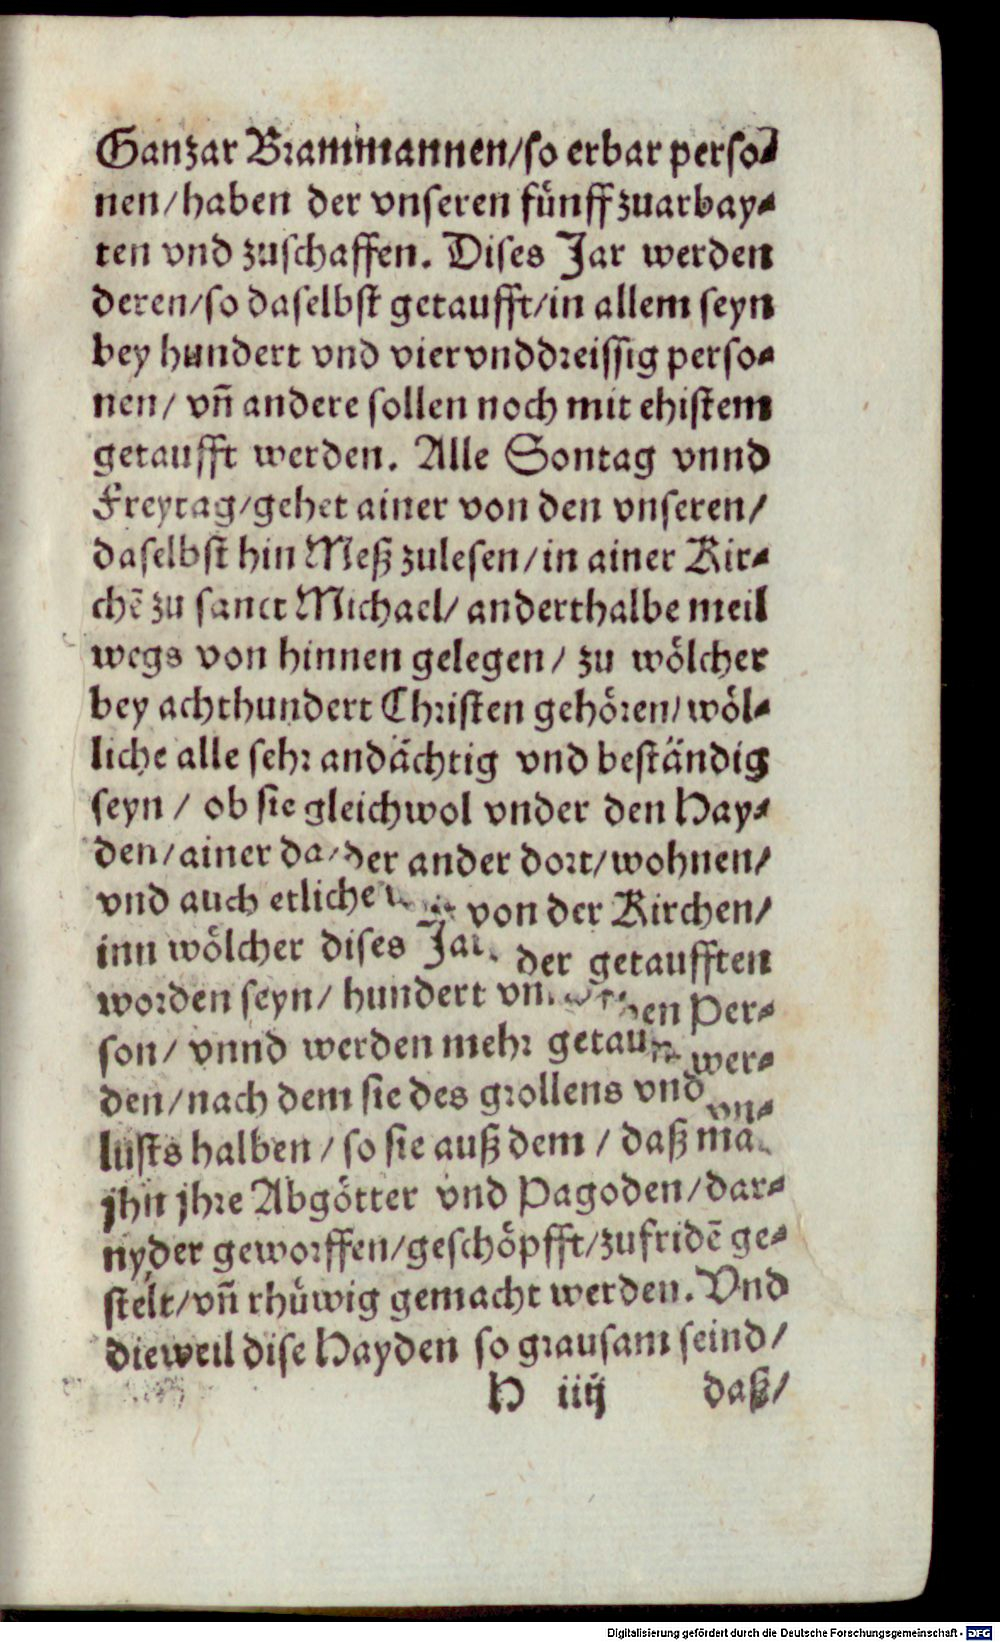 Ganzar Brammannen/so erbar perso⸗
nen/haben der vnseren fünff zuarbay⸗
ten vnd zuschaffen. Dises Jar werden
deren/so daselbst getaufft/in allem seyn
bey hundert vnd vier vnddreissig perso⸗
nen/ vñ andere sollen noch mit ehistem
getaufft werden. Alle Sontag vnnd
Freytag/gehet ainer von den vnseren/
daselbst hin Meß zulesen/in ainer Kir⸗
chē zu sanct Michael/ anderthalbe meil
wegs von hinnen gelegen/ zu wölcher
bey achthundert Christen gehören/wöl⸗
liche alle sehr andächtig vnd beständig
seyn/ ob sie gleichwol vnder den Hay⸗
den/ainer da/der ander dort/wohnen/
vnd auch etliche von der Kirchen/
inn wölcher dises Jar der getaufften
worden seyn/ hundert Per⸗
son/ vnnd werden mehr wer⸗
den/nach dem sie des grollens vnd vn⸗
lusts halben/so sie auß dem/ daß
jhn jhre Abgötter vnd Pagoden/dar⸗
nyder geworffen/geschöpfft/zufridē ge⸗
stelt/vñ rhüwig gemacht werden. Vnd
dieweil dise Hayden so grausam seind/
H iiij daß/
Digitalisierung gefördert durch die Deutsche Forschungsgemeinschaft - DFG